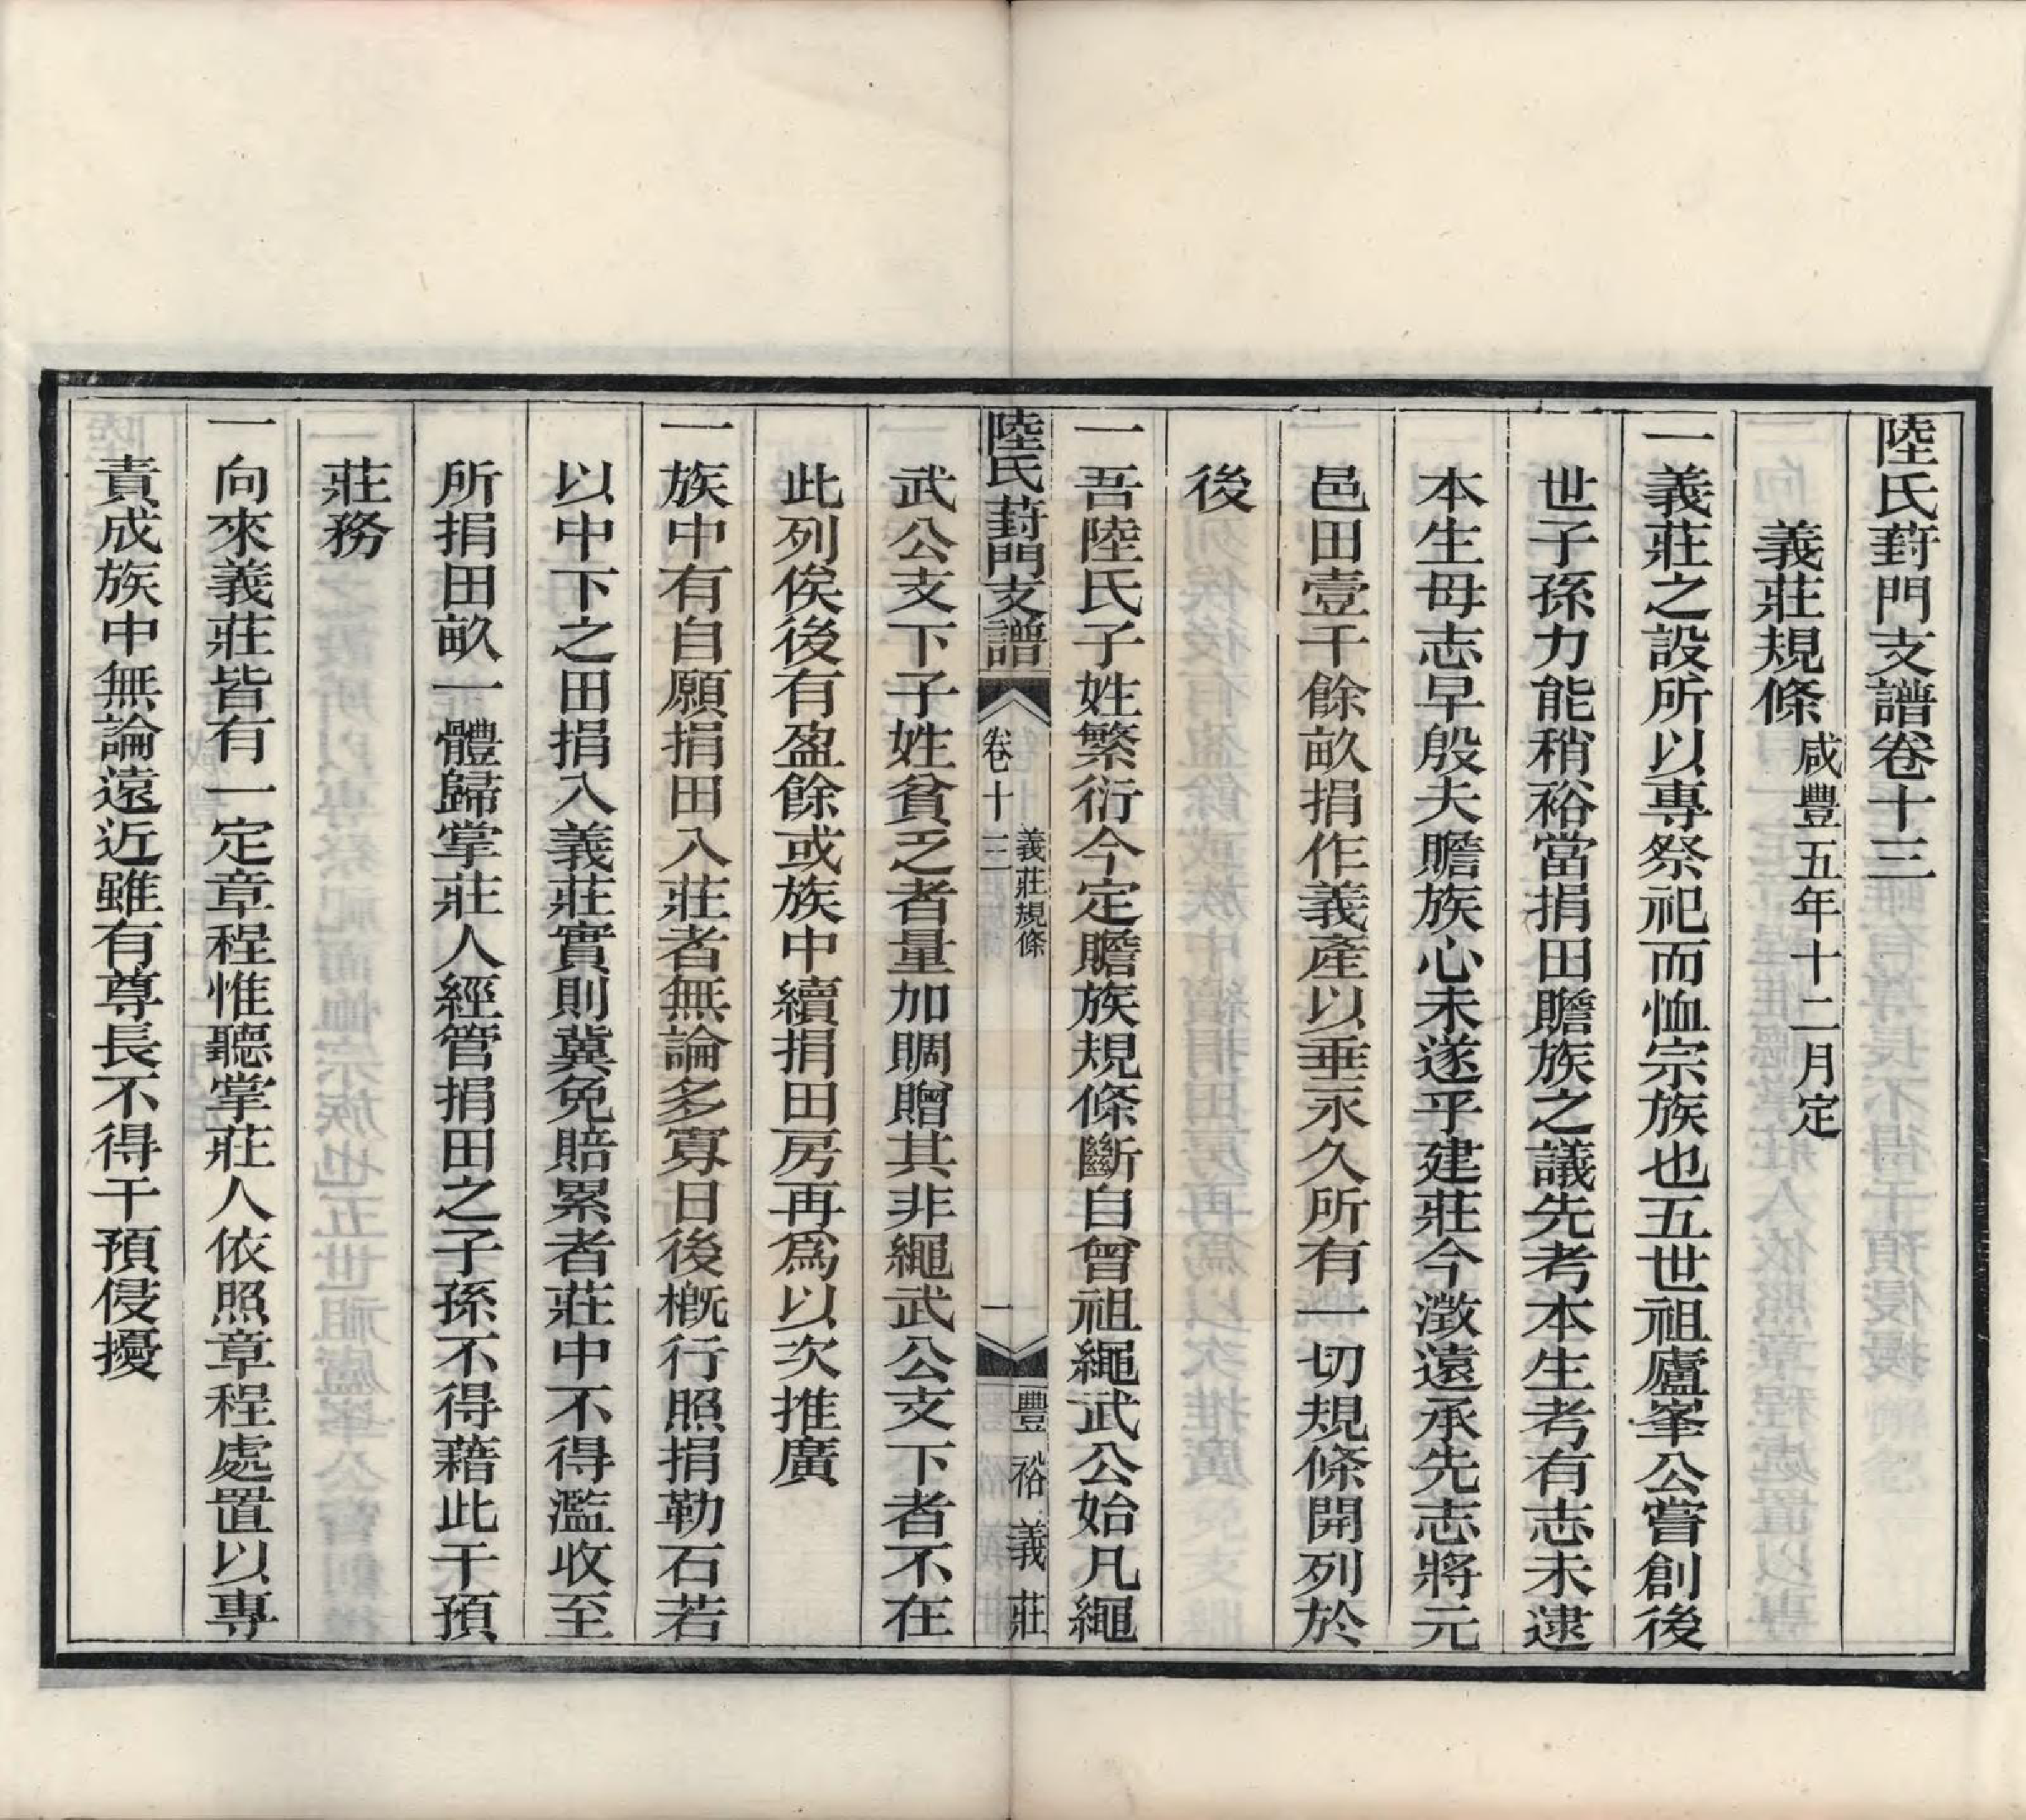 陸氏葑門支譜卷十三
義莊規條咸豐五年十二月定
一義莊之設所以專祭祀而恤宗族也五世祖廬峯公嘗創後
世子孫力能稍裕當捐田贍族之議先考本生考有志未逮
本生母志早殷夫贍族心未遂乎建莊今澂遠承先志將元
邑田壹千餘畝捐作義產以垂永久所有一切規條開列於
後
一吾陸氏子姓繁衍今定贍族規條斷自曾祖繩武公始凡繩
陸氏葑門支譜
卷十三
義莊規條
一
豐裕義莊
武公支下子姓貧乏者量加賙贈其非繩武公支下者不在
此列俟後有盈餘或族中續捐田房再為以次推廣
一族中有自願捐田入莊者無論多寡日後概行照捐勒石若
以中下之田捐入義莊實則冀免賠累者莊中不得濫收至
所捐田畝一體歸掌莊人經管捐田之子孫不得藉此干預
莊務
一向來義莊皆有一定章程惟聽掌莊人依照章程處置以專
責成族中無論遠近雖有尊長不得干預侵擾